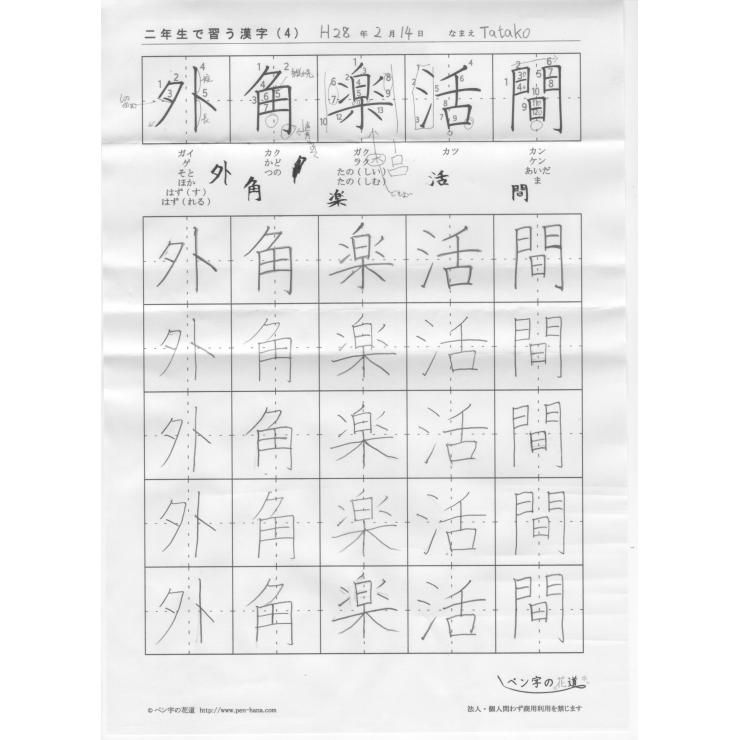 二年生で習う漢字（4） H28年2月14日 なまえ Tatako
外 角 楽 活 間
ガイ カク ガク カツ カン
ゲ かど ラク ケン
そと つの たの（しい） あいだ
ほか たの（しむ） ま
はず（す）
はず（れる）
外 角 楽 活 間
外 角 楽 活 間
外 角 楽 活 間
外 角 楽 活 間
外 角 楽 活 間
外 角 楽 活 間
ペン字の花道
© ペン字の花道 http://www.pen-hana.com 法人・個人問わず商用利用を禁じます